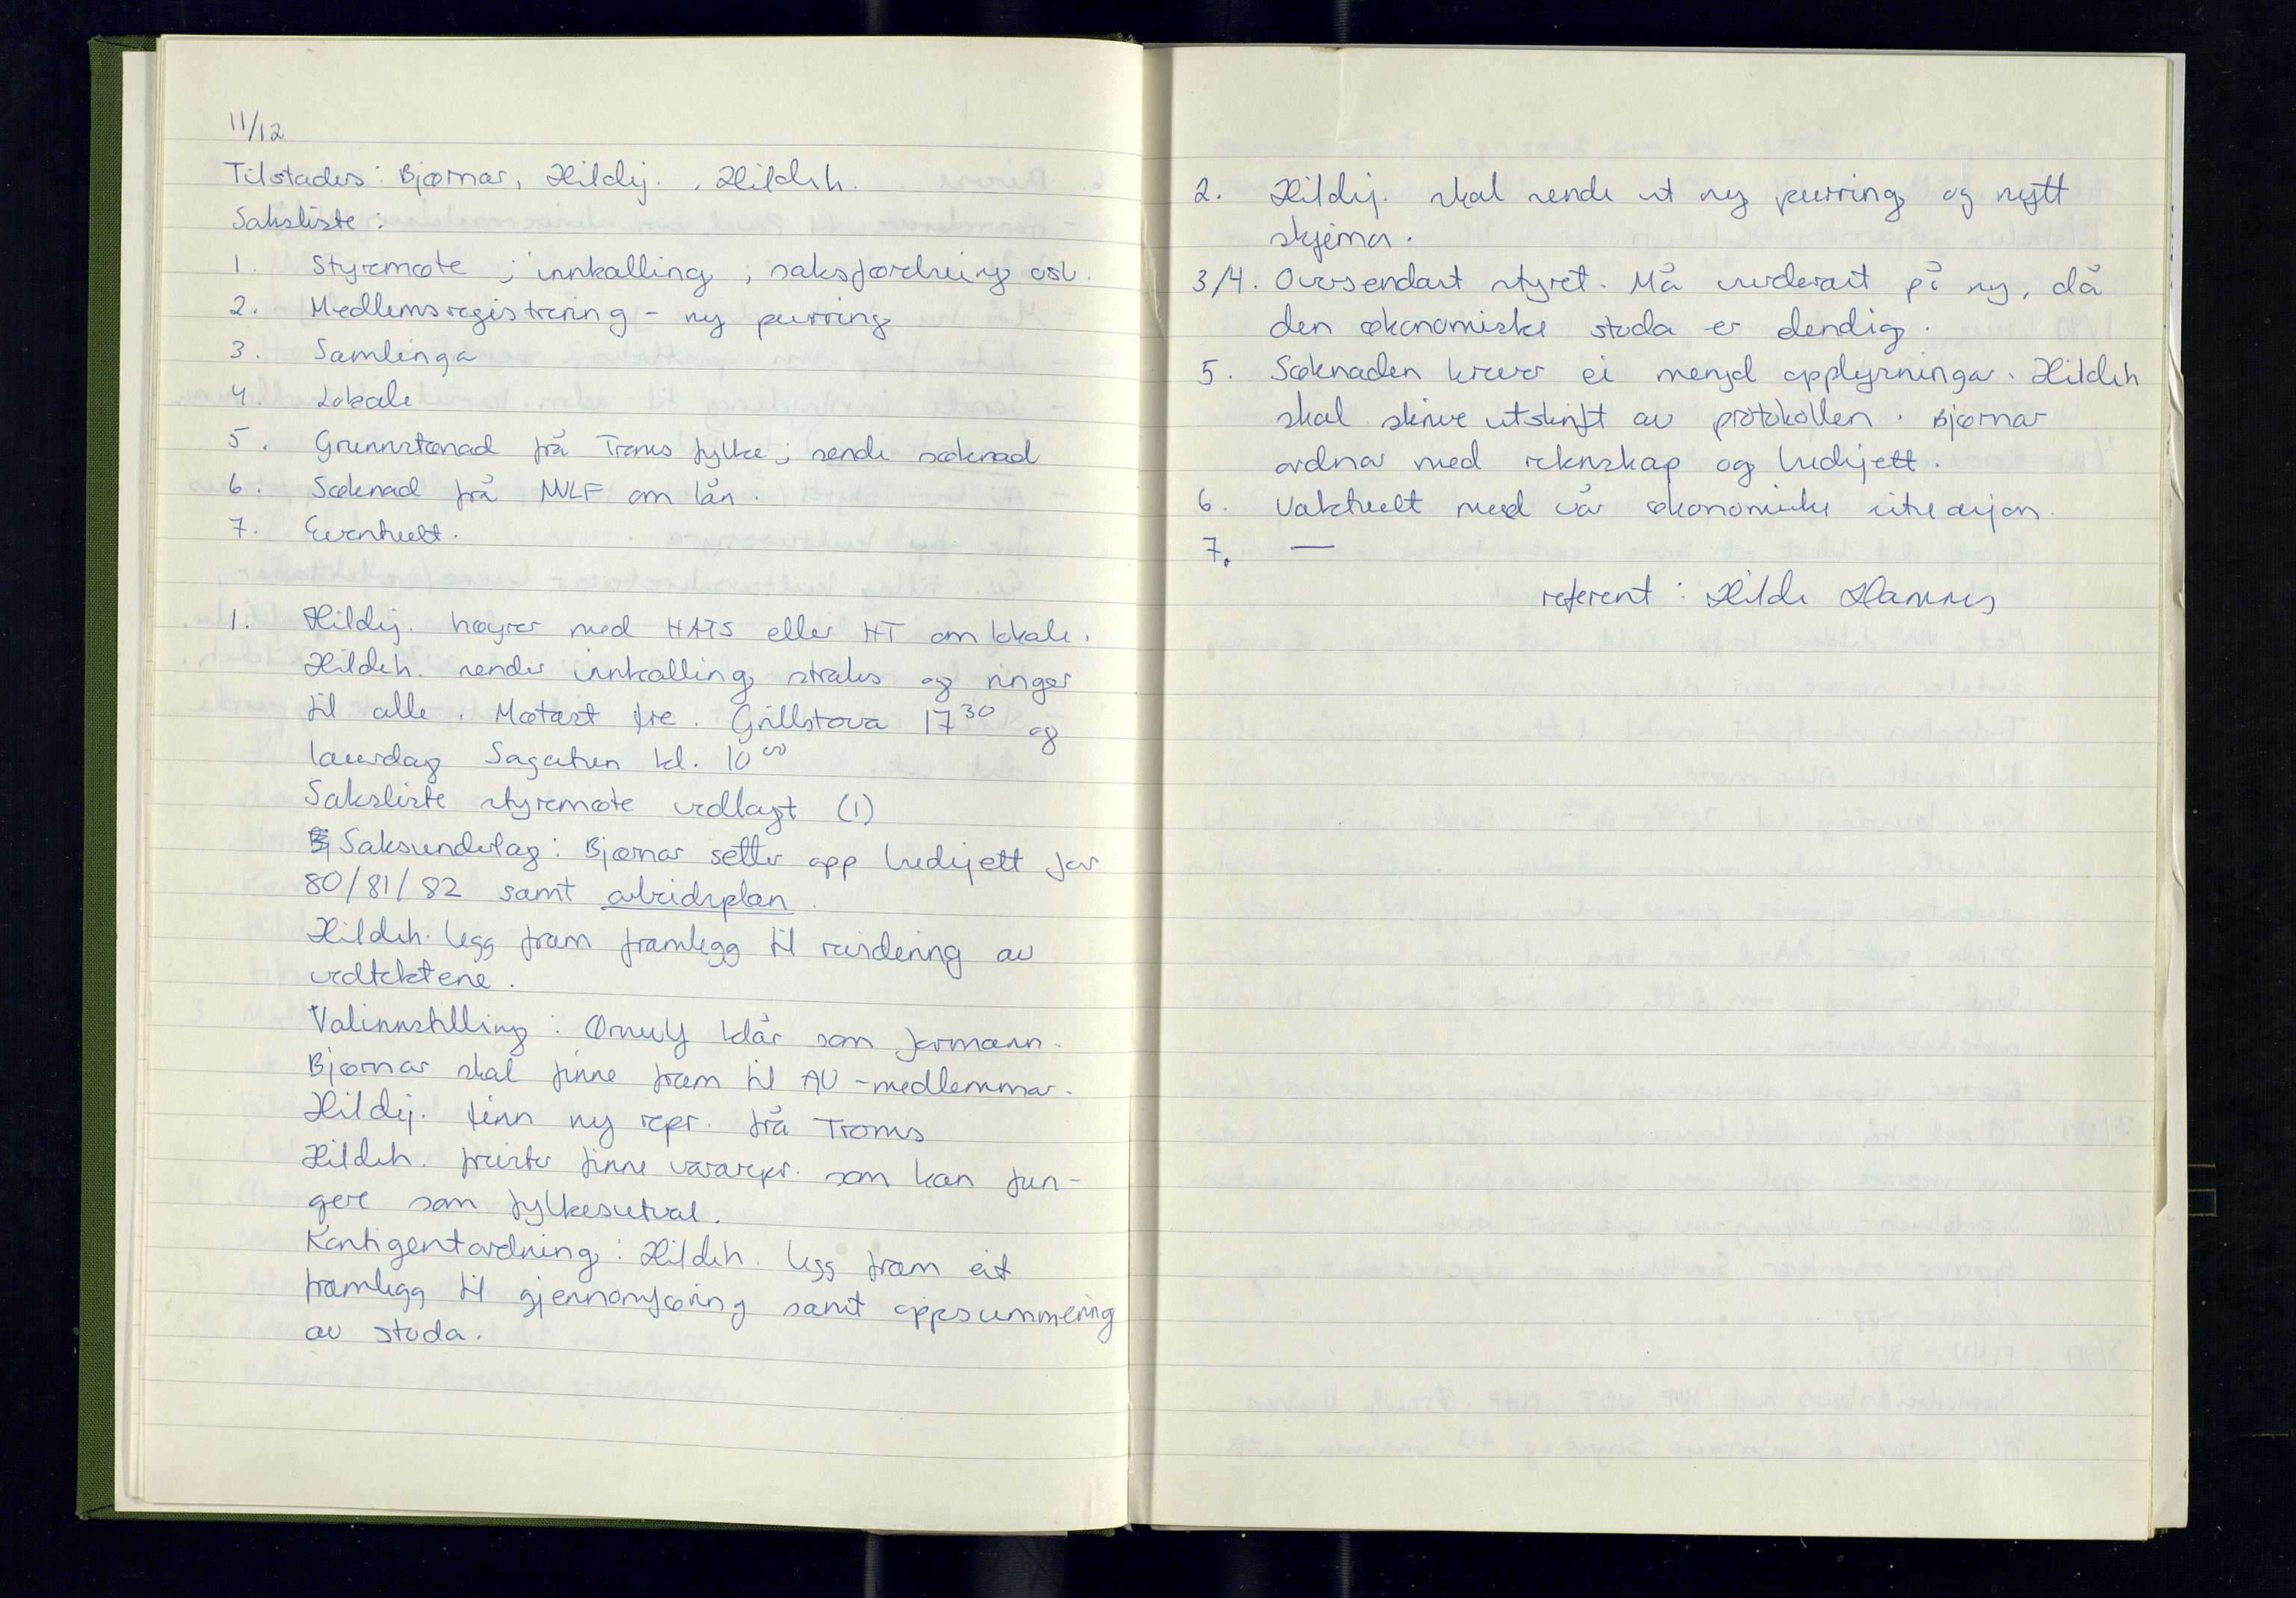 11/12
Tilstades: Bjørnar, Hildej., Hildeh.
Saksliste:
1. Styremøte; innkalling, saksfordeling osv.
2. Medlemsregistrering - ny purring
3. Samlinga
4. Lokale
5. Grunnstønad frå Troms fylke; sende søknad
6. Søknad frå NVLF om lån.
7. Eventuelt.
1. Hildej. høyrer med HATS eller HT om lokale.
Hildeh. sender innkalling straks og ringer
til alle. Møtast fre. Grillstova 17³⁰ og
laurdag Sagatun kl. 10⁰⁰
Saksliste styremøte vedlagt (1)
Saksunderlag: Bjørnar setter opp budsjett for
80/81/82 samt arbeidsplan.
Hildeh. legg fram framlegg til revidering av
vedtektene.
Valinnstilling: Ørnulf klår som formann.
Bjørnar skal finne fram til AU-medlemmar.
Hildej. finn ny repr. frå Troms
Hildeh. prøver finne vararepr. som kan fun-
gere som fylkesutval.
Kontigentordning: Hildeh. legg fram eit
framlegg til gjennomføring samt oppsummering
av stoda.
2. Hildej. skal sende ut ny purring og nytt
skjema.
3/4. Oversendast styret. Må vurderast på ny, då
den økonomiske stoda er elendig.
5. Søknaden krever ei mengd opplysningar. Hildeh
skal skrive utskrift av protokollen. Bjørnar
ordnar med rekneskap og budsjett.
6. Uaktuelt med vår økonomiske situasjon.
7. —
referent: Hilde Hannes